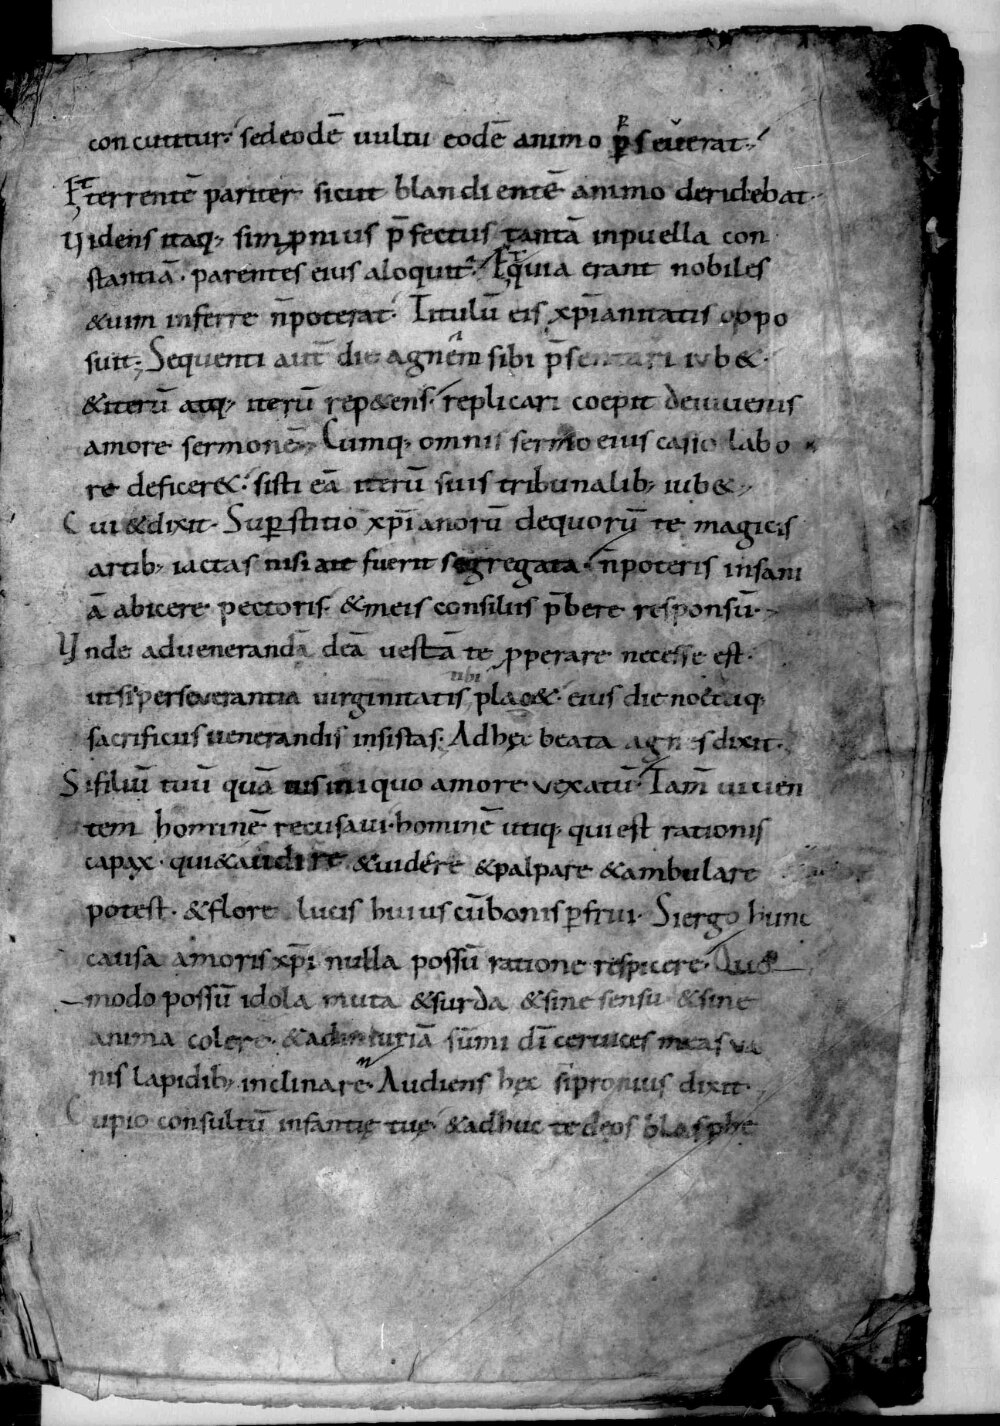 concutitur. sed eodē uultu eodē animo p̄seuerat.
Et terrentē pariter sicut blandientē animo deridebat.
Uidens itaq; simꝓnius p̄fectus tantā inpuella con
stantiā. parentes eius aloquit᷑. Et quia erant nobiles
&uim inferre n̄poterat. Titulū eis xp̄ianitatis oppo
suit; Sequenti aut̄ die agnēm sibi p̄sentari iub&.
&iterū atq; iterū rep&ens. replicari coepit deiuuenis
amore sermonē. Cumq; omnis sermo eius casso labo
re deficer&. sisti eā iterū suis tribunalib; iub&.
Cui &dixit. Suꝑstitio xp̄ianorū dequorū te magicis
artib; iactas nisi a te fuerit segregata. n̄poteris insani
ā abicere pectoris. &meis consiliis p̄bere responsū.
Unde aduenerandā deā uestā te ꝓperare necesse est.
ut si perseuerantia uirginitatis tibi plac&. eius die noctuq;
sacrificiis uenerandis insistas. Adhęc beata agnes dixit.
Si filiū tuū quā uis iniquo amore vexatū. Tam̄ uiuen
tem hominē recusaui. hominē utiq; qui est rationis
capax. qui &audire &uidere &palpare &ambulare
potest. &flore lucis huius cū bonis ꝑfrui. Si ergo hunc
causa amoris xp̄i nulla possū ratione respicere. Quo
modo possū idola muta &surda &sine sensu &sine
anima colere. &adiniuriā sūmi dī ceruices meas va
nis lapidib; inclinare. Audiens hęc sīpronius dixit.
Cupio consultū infantię tuę. &adhuc te deos blasphe